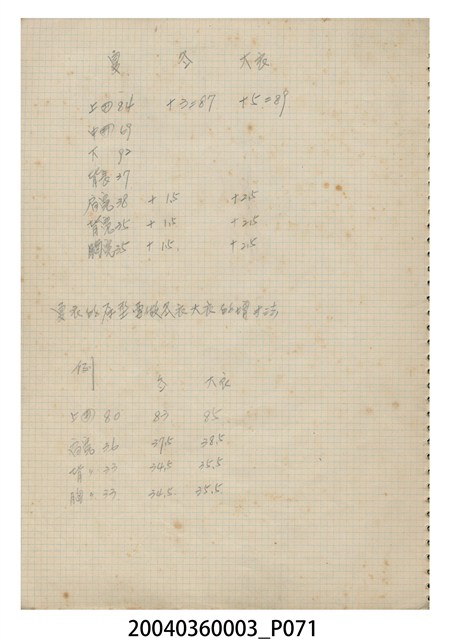 夏 冬 大衣
上囲 84 +3=87 +5=89
中囲 69
下 92
背長 37
肩寬 38 +1.5 +2.5
背寬 35 +1.5 +2.5
胸寬 35 +1.5 +2.5
夏衣的原型要做冬衣大衣的增加
例 冬 大衣
上囲 80 83 85
肩寬 36 37.5 38.5
背〃 33 34.5 35.5
胸〃 33 34.5 35.5
20040360003_P071